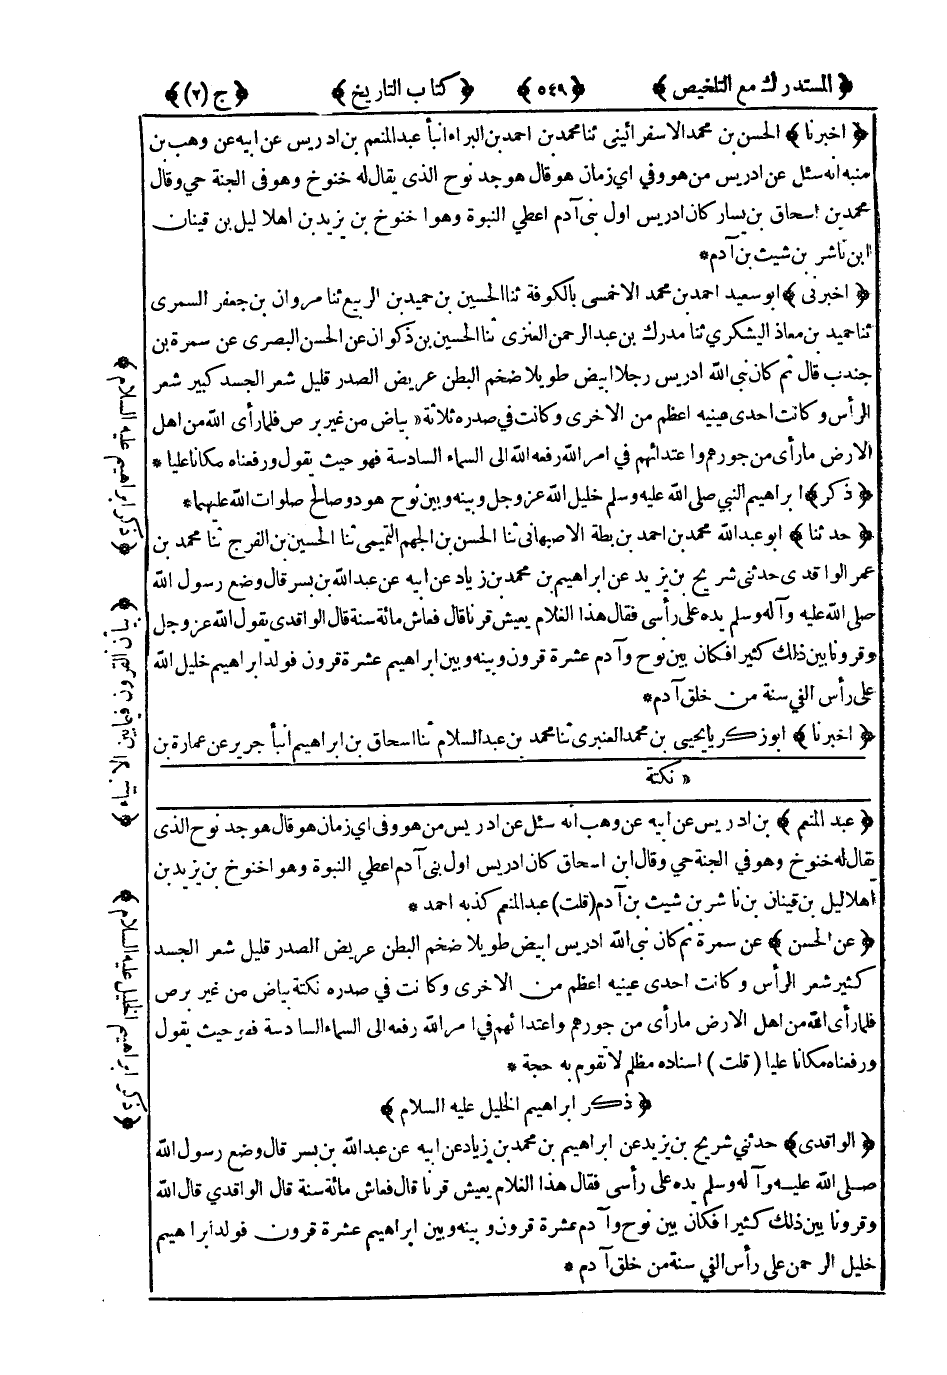 ﴿ المستدرك مع التلخيص ﴾ ﴿ ٥٤٩ ﴾ ﴿ كتاب التاريخ ﴾ ﴿ ج (٢) ﴾
﴿ اخبرنا ﴾ الحسن بن محمد الاسفرائيني ثنا محمد بن احمد بن البراء انبأ عبد المنعم بن ادريس عن ابيه عن وهب بن
منبه انه سئل عن ادريس من هو وفي اي زمان هو قال هو جد نوح الذى يقال له خنوخ وهو فى الجنة حي وقال
محمد بن اسحاق بن يسار كان ادريس اول بنى آدم اعطي النبوة وهو اخنوخ بن يزيد بن اهلا ليل بن قينان
ابن ناشر بن شيث بن آدم*
﴿ اخبرنى ﴾ ابو سعيد احمد بن محمد الاخمسى بالكوفة ثنا الحسين بن حميد بن الربيع ثنا مروان بن جعفر السمرى
ثنا حميد بن معاذ اليشكري ثنا مدرك بن عبد الرحمن العنزى ثنا الحسين بن ذكوان عن الحسن البصرى عن سمرة بن
جندب قال ثم كان نبى الله ادريس رجلا ابيض طويلا ضخم البطن عريض الصدر قليل شعر الجسد كبير شعر
الرأس وكانت احدى عينيه اعظم من الاخرى وكانت في صدره ثلاثة « بياض من غير برص فلما رأى الله من اهل
الارض ما رأى من جورهم واعتدائهم في امر الله رفعه الله الى السماء السادسة فهو حيث يقول ورفعناه مكانا عليا *
﴿ ذكر ﴾ ابراهيم النبي صلى الله عليه وسلم خليل الله عز وجل وبينه وبين نوح هود وصالح صلوات الله عليهما*
﴿ حدثنا ﴾ ابو عبد الله محمد بن احمد بن بطة الاصبهانى ثنا الحسن بن الجهم التميمى ثنا الحسين بن الفرج ثنا محمد بن
عمر الواقدى حدثنى شريح بن يزيد عن ابراهيم بن محمد بن زياد عن ابيه عن عبد الله بن بسر قال وضع رسول الله
صلى الله عليه وآله وسلم يده على رأسى فقال هذا الغلام يعيش قرنا قال فعاش مائة سنة قال الواقدى يقول الله عز وجل
وقرونا بين ذلك كثيرا فكان بين نوح وآدم عشرة قرون وبينه وبين ابراهيم عشرة قرون فولد ابراهيم خليل الله
على رأس الفي سنة من خلق آدم*
﴿ اخبرنا ﴾ ابو زكريا يحيى بن محمد العنبرى ثنا محمد بن عبد السلام ثنا اسحاق بن ابراهيم انبأ جرير عن عمارة بن
« نكتة
﴿ عبد المنعم ﴾ بن ادريس عن ابيه عن وهب انه سئل عن ادريس من هو وفى اي زمان هو قال هو جد نوح الذى
يقال له خنوخ وهو في الجنة حي وقال ابن اسحاق كان ادريس اول بنى آدم اعطي النبوة وهو اخنوخ بن يزيد بن
اهلاليل بن قينان بن ناشر بن شيث بن آدم (قلت) عبد المنعم كذبه احمد *
﴿ عن الحسن ﴾ عن سمرة ثم كان نبى الله ادريس ابيض طويلا ضخم البطن عريض الصدر قليل شعر الجسد
كثير شعر الرأس وكانت احدى عينيه اعظم من الاخرى وكانت في صدره نكتة بياض من غير برص
فلما رأى الله من اهل الارض ما رأى من جورهم واعتدائهم في امر الله رفعه الى السماء السادسة فهو حيث يقول
ورفعناه مكانا عليا (قلت) اسناده مظلم لا تقوم به حجة *
﴿ ذكر ابراهيم الخليل عليه السلام ﴾
﴿ الواقدى ﴾ حدثني شريح بن يزيد عن ابراهيم بن محمد بن زياد عن ابيه عن عبد الله بن بسر قال وضع رسول الله
صلى الله عليه وآله وسلم يده على رأسى فقال هذا الغلام يعيش قرنا قال فعاش مائة سنة قال الواقدي قال الله
وقرونا بين ذلك كثيرا فكان بين نوح وآدم عشرة قرون وبينه وبين ابراهيم عشرة قرون فولد ابراهيم
خليل الرحمن على رأس الفي سنة من خلق آدم *
﴿ ذكر ابراهيم عليه السلام ﴾
﴿ ذكر ابراهيم الخليل عليه السلام ﴾